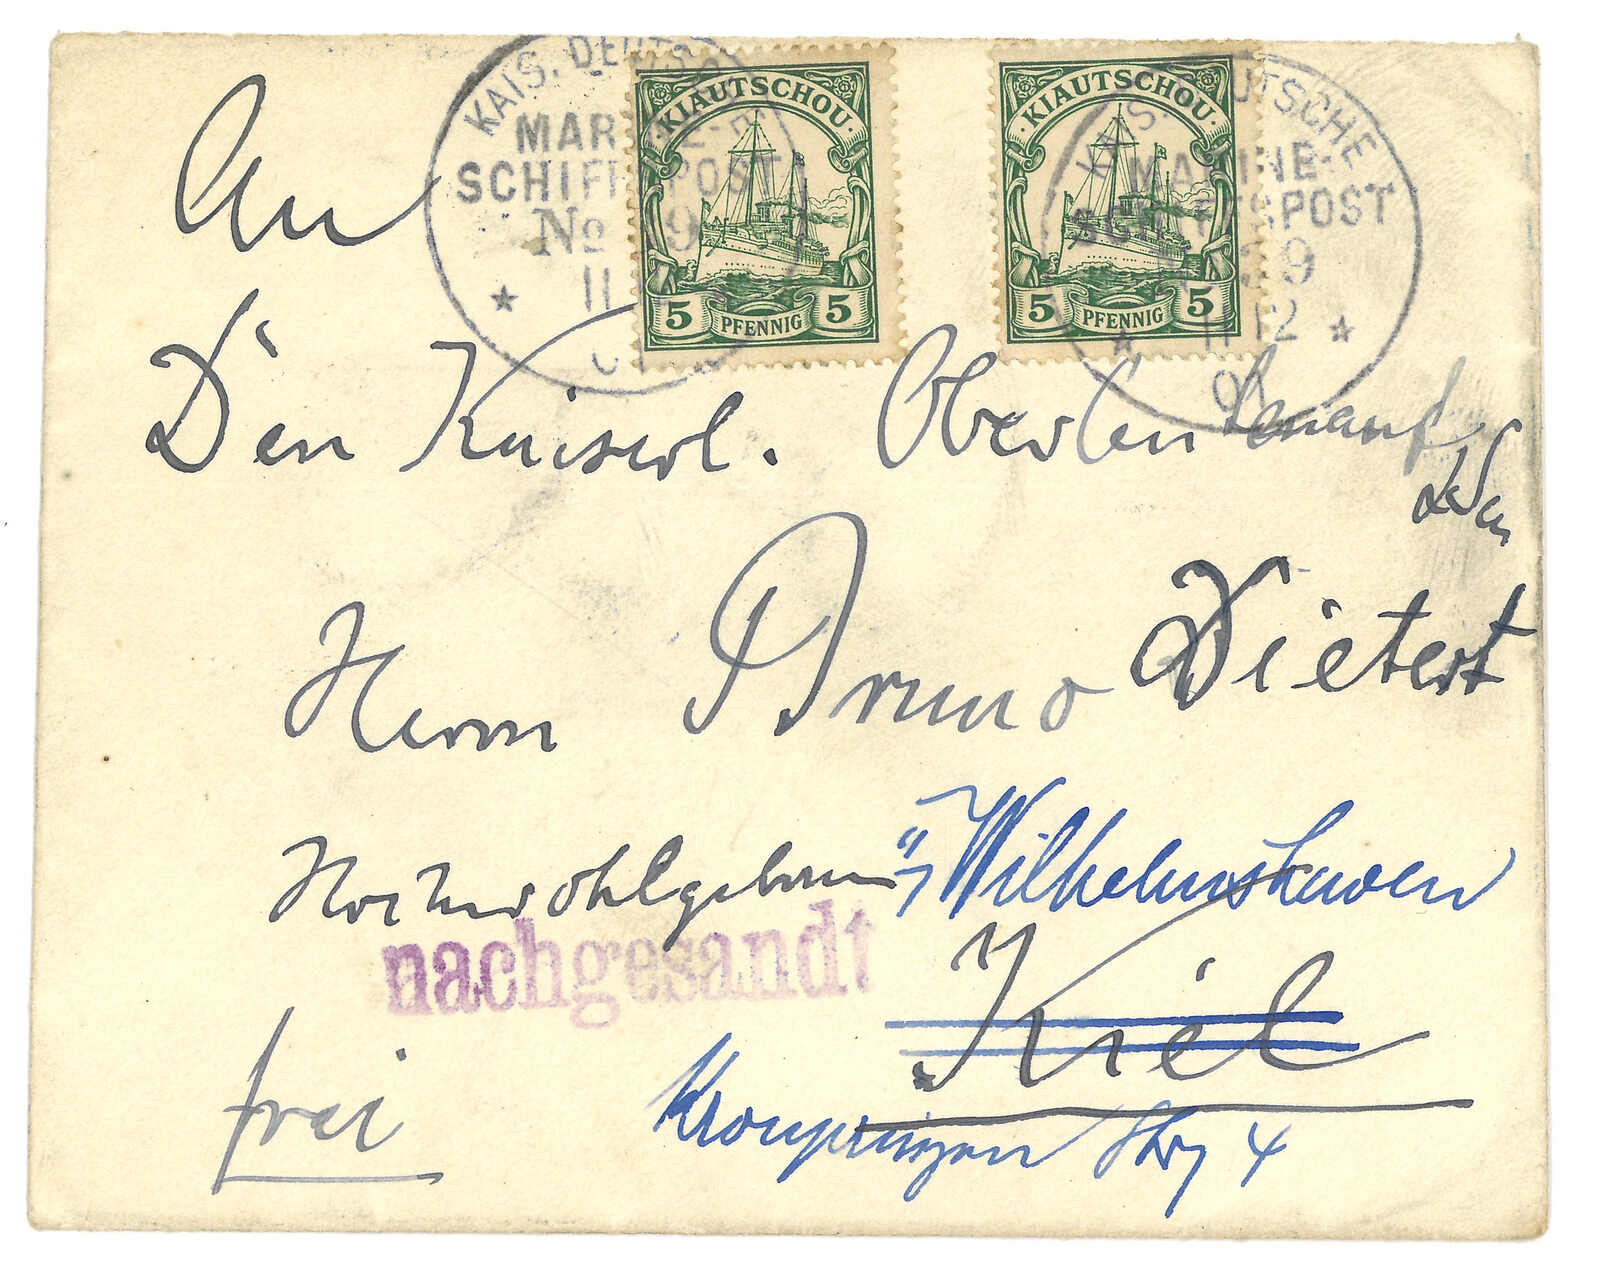 KAIS. DEUTSCHE
MARINE-
SCHIFFSPOST
No 9
11
KIAUTSCHOU
5 PFENNIG 5
KIAUTSCHOU
5 PFENNIG 5
KAIS. DEUTSCHE
MARINE-
SCHIFFSPOST
9
11 12
An
Den Kaiserl. Oberleutenant
Herrn Bruno Dietert
Hochwohlgeboren
Wilhelmshaven
nachgesandt
Kiel
frei
Kronprinzen Str 4